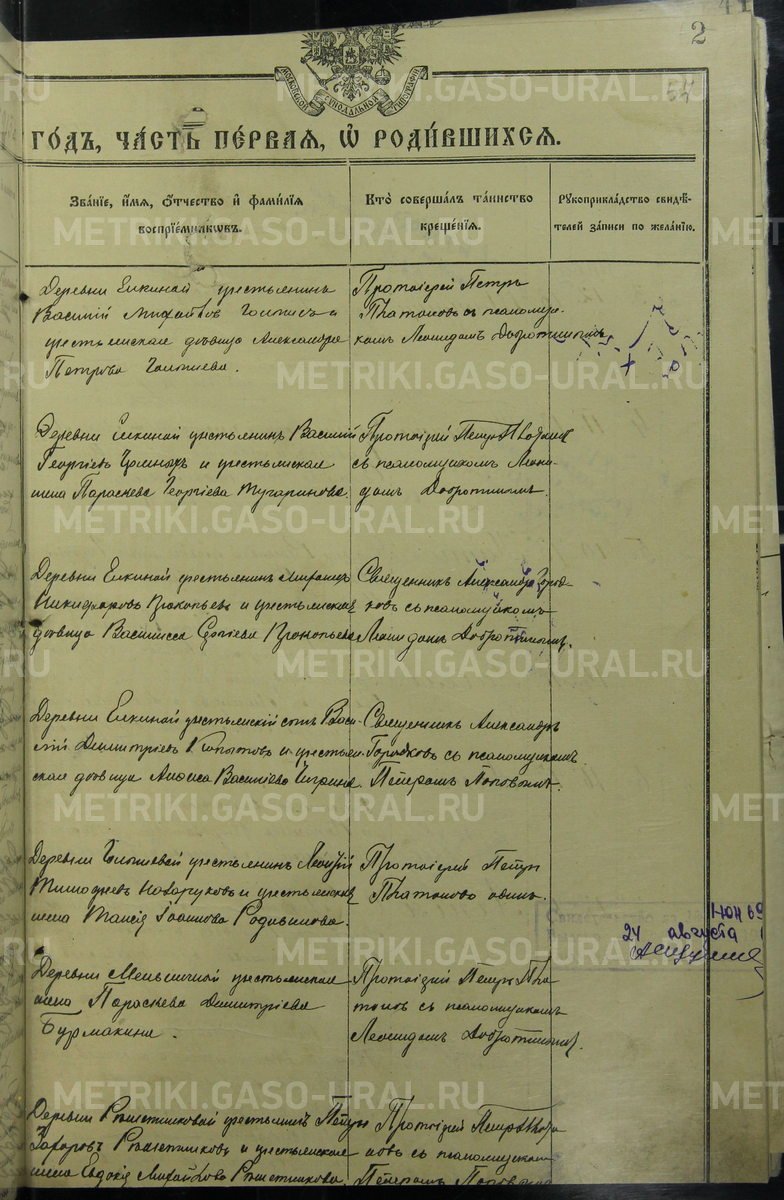 2
57
МОСКОВСКОЙ СѴНОДАЛЬНОЙ ТИПОГРАФІИ
ГО́ДЪ, ЧА́СТЬ ПЕ́РВАЯ, Ѡ҆ РОДИ́ВШИХСЯ.
Зва́нїе, и҆́мя, ѻ҆́тчество и҆ фами́лїя воспрїе́мникѡвъ.
Кто̀ соверша́лъ та́инство креще́нїя.
Рꙋкоприкла́дство свидѣ́телей за́писи по жела́нїю.
Деревни Елкиной крестьянинъ
Василій Михайлов и
крестьянская дѣвица Александра
Петрова
Протоіерей Петръ
Платоновъ съ псаломщи-
комъ Леонидомъ Добротинымъ
Деревни Елкиной крестьянинъ Василій
Георгіевъ и крестьянская
жена Параскева Георгіева Тугаринова.
Протоіерей Петръ Платонов
съ псаломщикомъ Леони-
домъ Добротинымъ.
Деревни Елкиной крестьянинъ
Никифоровъ Прокопьевъ и крестьянская
дѣвица Василисса Сергіева Прокопьева
Священникъ Александръ Город-
ковъ съ псаломщикомъ
Леонидомъ Добротинымъ.
Деревни Елкиной крестьянскій сынъ Васи-
лій Димитріевъ Копытовъ и крестьян-
ская дѣвица Анфиса Васильева
Священникъ Александръ
Городковъ съ псаломщикомъ
Петромъ Поповымъ.
Деревни крестьянинъ
Тимофеевъ и крестьянская
жена Таисія Іоаннова Родивилова.
Протоіерей Петръ
Платоновъ одинъ.
24 августа
Деревни Мельничной крестьянская
жена Параскева Димитріева
Бурмакина.
Протоіерей Петръ Пла-
тоновъ съ псаломщикомъ
Леонидомъ Добротинымъ.
Деревни Рѣшетниковой крестьянинъ Петръ
Захаровъ Рѣшетниковъ и крестьянская
жена Евдокія Михайлова Рѣшетникова
Протоіерей Петръ Плато-
новъ съ псаломщикомъ
Петромъ Поповымъ
METRIKI.GASO-URAL.RU